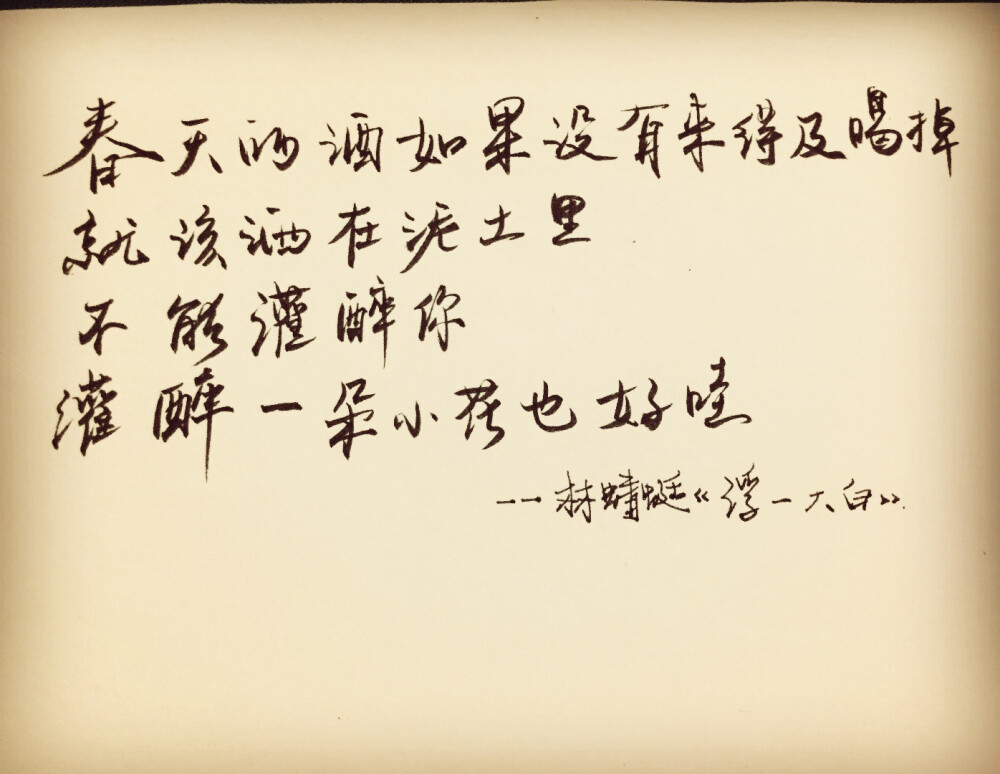 春天的酒如果没有来得及喝掉
就该洒在泥土里
不能灌醉你
灌醉一朵小花也好哇
——林蜻蜓《浮一大白》